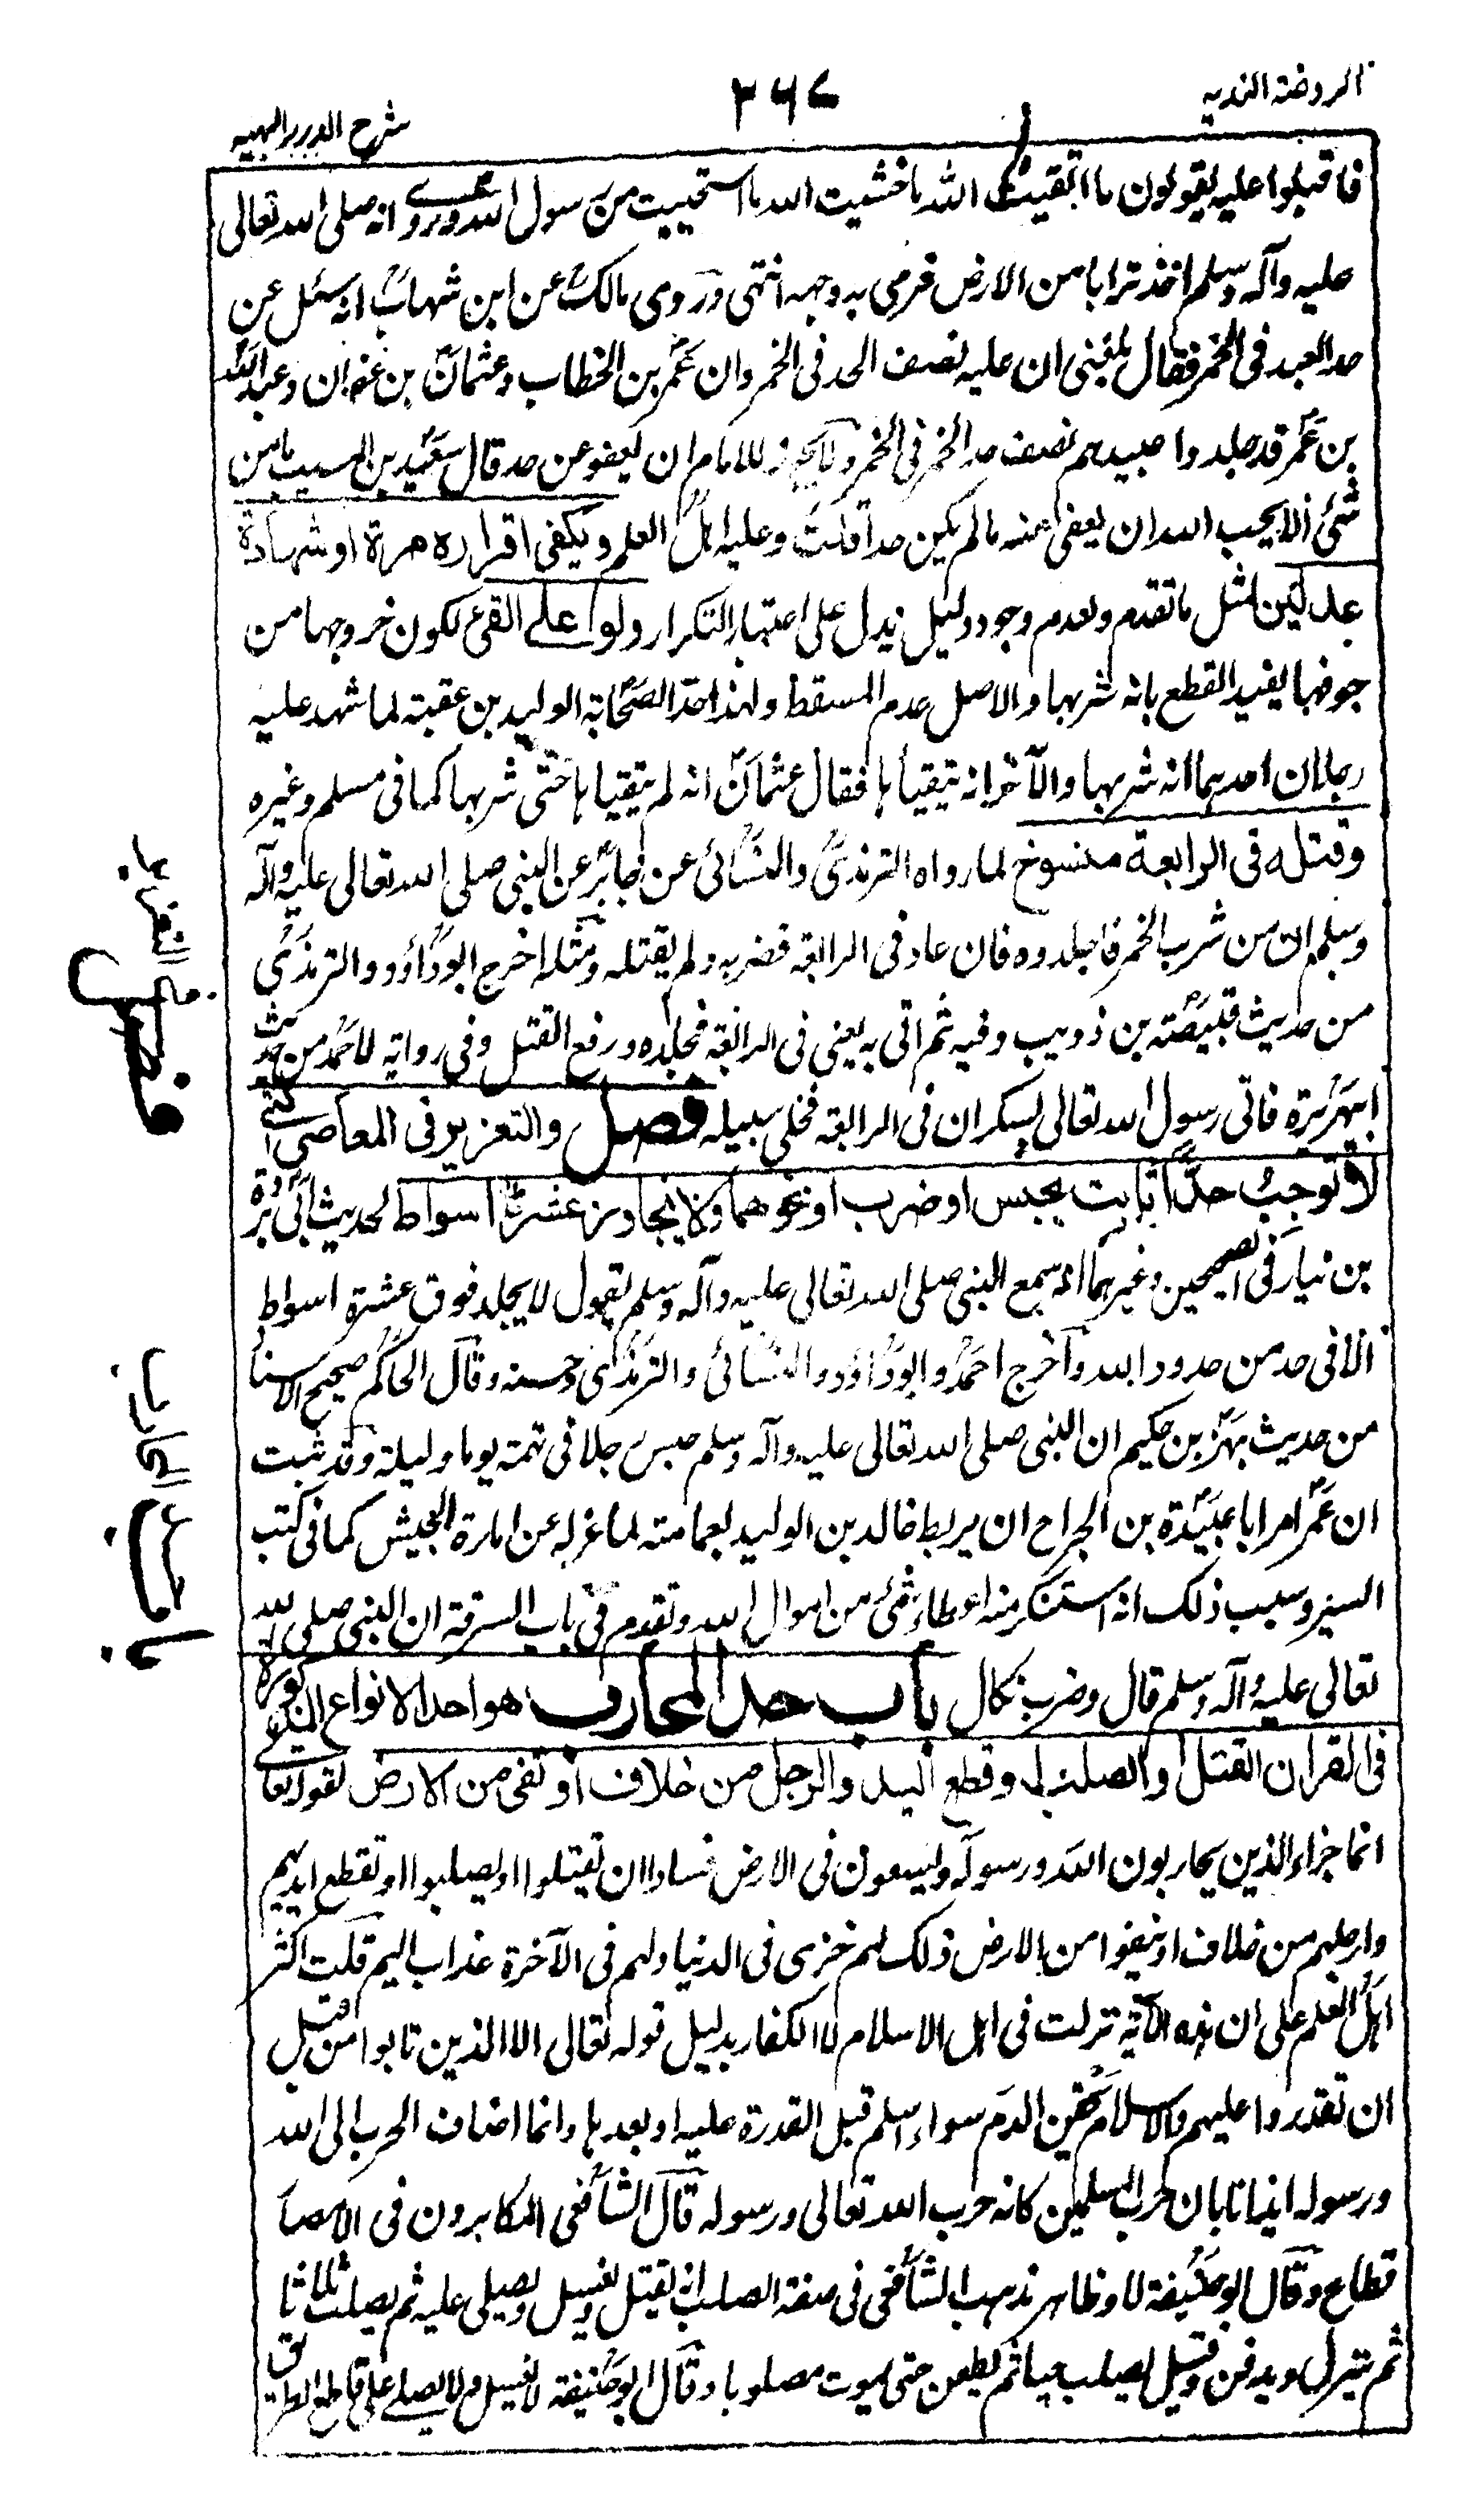 الروضة الندية
٣٦٧
شرح الدرر البهية
فاقبلوا عليه يقولون ما اتقيت الله ما خشيت الله ما استحييت من رسول الله وروى انه صلى الله تعالى
عليه وآله وسلم اخذ ترابا من الارض فرمى به وجهه انتهى وروى مالك عن ابن شهاب انه سئل عن
حد العبد فى الخمر فقال بلغنى ان عليه نصف الحد فى الخمر وان عمر بن الخطاب وعثمان بن عفان وعبد الله
بن عمر قد جلدوا عبيدهم نصف حد الخمر فى الخمر ولا يجوز للامام ان يعفو عن حد قال سعيد بن المسيب ما من
شئ الا يحب الله ان يعفى عنه ما لم يكن حدا قلت وعليه اهل العلم ويكفى اقراره مرة او شهادة
عدلين لمثل ما تقدم ولعدم وجود دليل يدل على اعتبار التكرار ولو على القئ لكون خروجها من
جوفها يفيد القطع بانه شربها والاصل عدم المسقط ولهذا حد الصحابة الوليد بن عقبة لما شهد عليه
رجلان احدهما انه شربها والآخر انه يتقيأها فقال عثمان انه لم يتقيأها حتى شربها كما فى مسلم وغيره
وقتله فى الرابعة منسوخ لما رواه الترمذى والنسائى عن جابر عن النبى صلى الله تعالى عليه وآله
وسلم ان من شرب الخمر فاجلدوه فان عاد فى الرابعة فضربه ولم يقتله ومثله اخرج ابو داؤد والترمذى
من حديث قبيصة بن ذويب وفيه ثم اتى به يعنى فى الرابعة فجلده ورفع القتل وفى رواية لاحمد من حديث
ابيهريرة فاتى رسول الله تعالى بسكران فى الرابعة فخلى سبيله فصل والتعزير فى المعاصى التى
لا توجب حدا ثابت بحبس او ضرب او نحوهما ولا يجاوز عشرة اسواط لحديث ابى بردة
بن نيار فى الصحيحين وغيرهما انه سمع النبى صلى الله تعالى عليه وآله وسلم يقول لا يجلد فوق عشرة اسواط
الا فى حد من حدود الله واخرج احمد وابو داؤد والنسائى والترمذى وحسنه وقال الحاكم صحيح الاسناد
من حديث بهز بن حكيم ان النبى صلى الله تعالى عليه وآله وسلم حبس رجلا فى تهمة يوما وليلة وقد ثبت
ان عمر امر ابا عبيدة بن الجراح ان يربط خالد بن الوليد بعمامته لما عزله عن امارة الجيش كما فى كتب
السير وسبب ذلك انه استنكر منه اعطاء شئ من اموال الله وتقدم فى باب السرقة ان النبى صلى الله
تعالى عليه وآله وسلم قال وضرب نكال باب حد المحارب هو احد الانواع المذكورة
فى القران القتل او الصلب او قطع اليد والرجل من خلاف او نفى من الارض لقوله تعالى
انما جزاء الذين يحاربون الله ورسوله ويسعون فى الارض فسادا ان يقتلوا او يصلبوا او تقطع ايديهم
وارجلهم من خلاف او ينفوا من الارض ذلك لهم خزى فى الدنيا ولهم فى الآخرة عذاب اليم قلت اكثر
اهل العلم على ان هذه الآية نزلت فى اهل الاسلام لا الكفار بدليل قوله تعالى الا الذين تابوا من قبل
ان تقدروا عليهم والاسلام يحقن الدم سواء اسلم قبل القدرة عليه او بعدها وانما اضاف الحرب الى الله
ورسوله ايذانا بان حرب المسلمين كانه حرب الله تعالى ورسوله قال الشافعى المكابرون فى الامصار
قطاع وقال ابو حنيفة لا وظاهر مذهب الشافعى فى صفة الصلب انه يقتل ويغسل ويصلى عليه ثم يصلب ثلاثا
ثم ينزل ويدفن وقيل يصلب حيا ثم يطعن حتى يموت مصلوبا وقال ابو حنيفة لا يغسل ولا يصلى على قاطع الطريق
فصل فى التعزير
باب حد المحارب